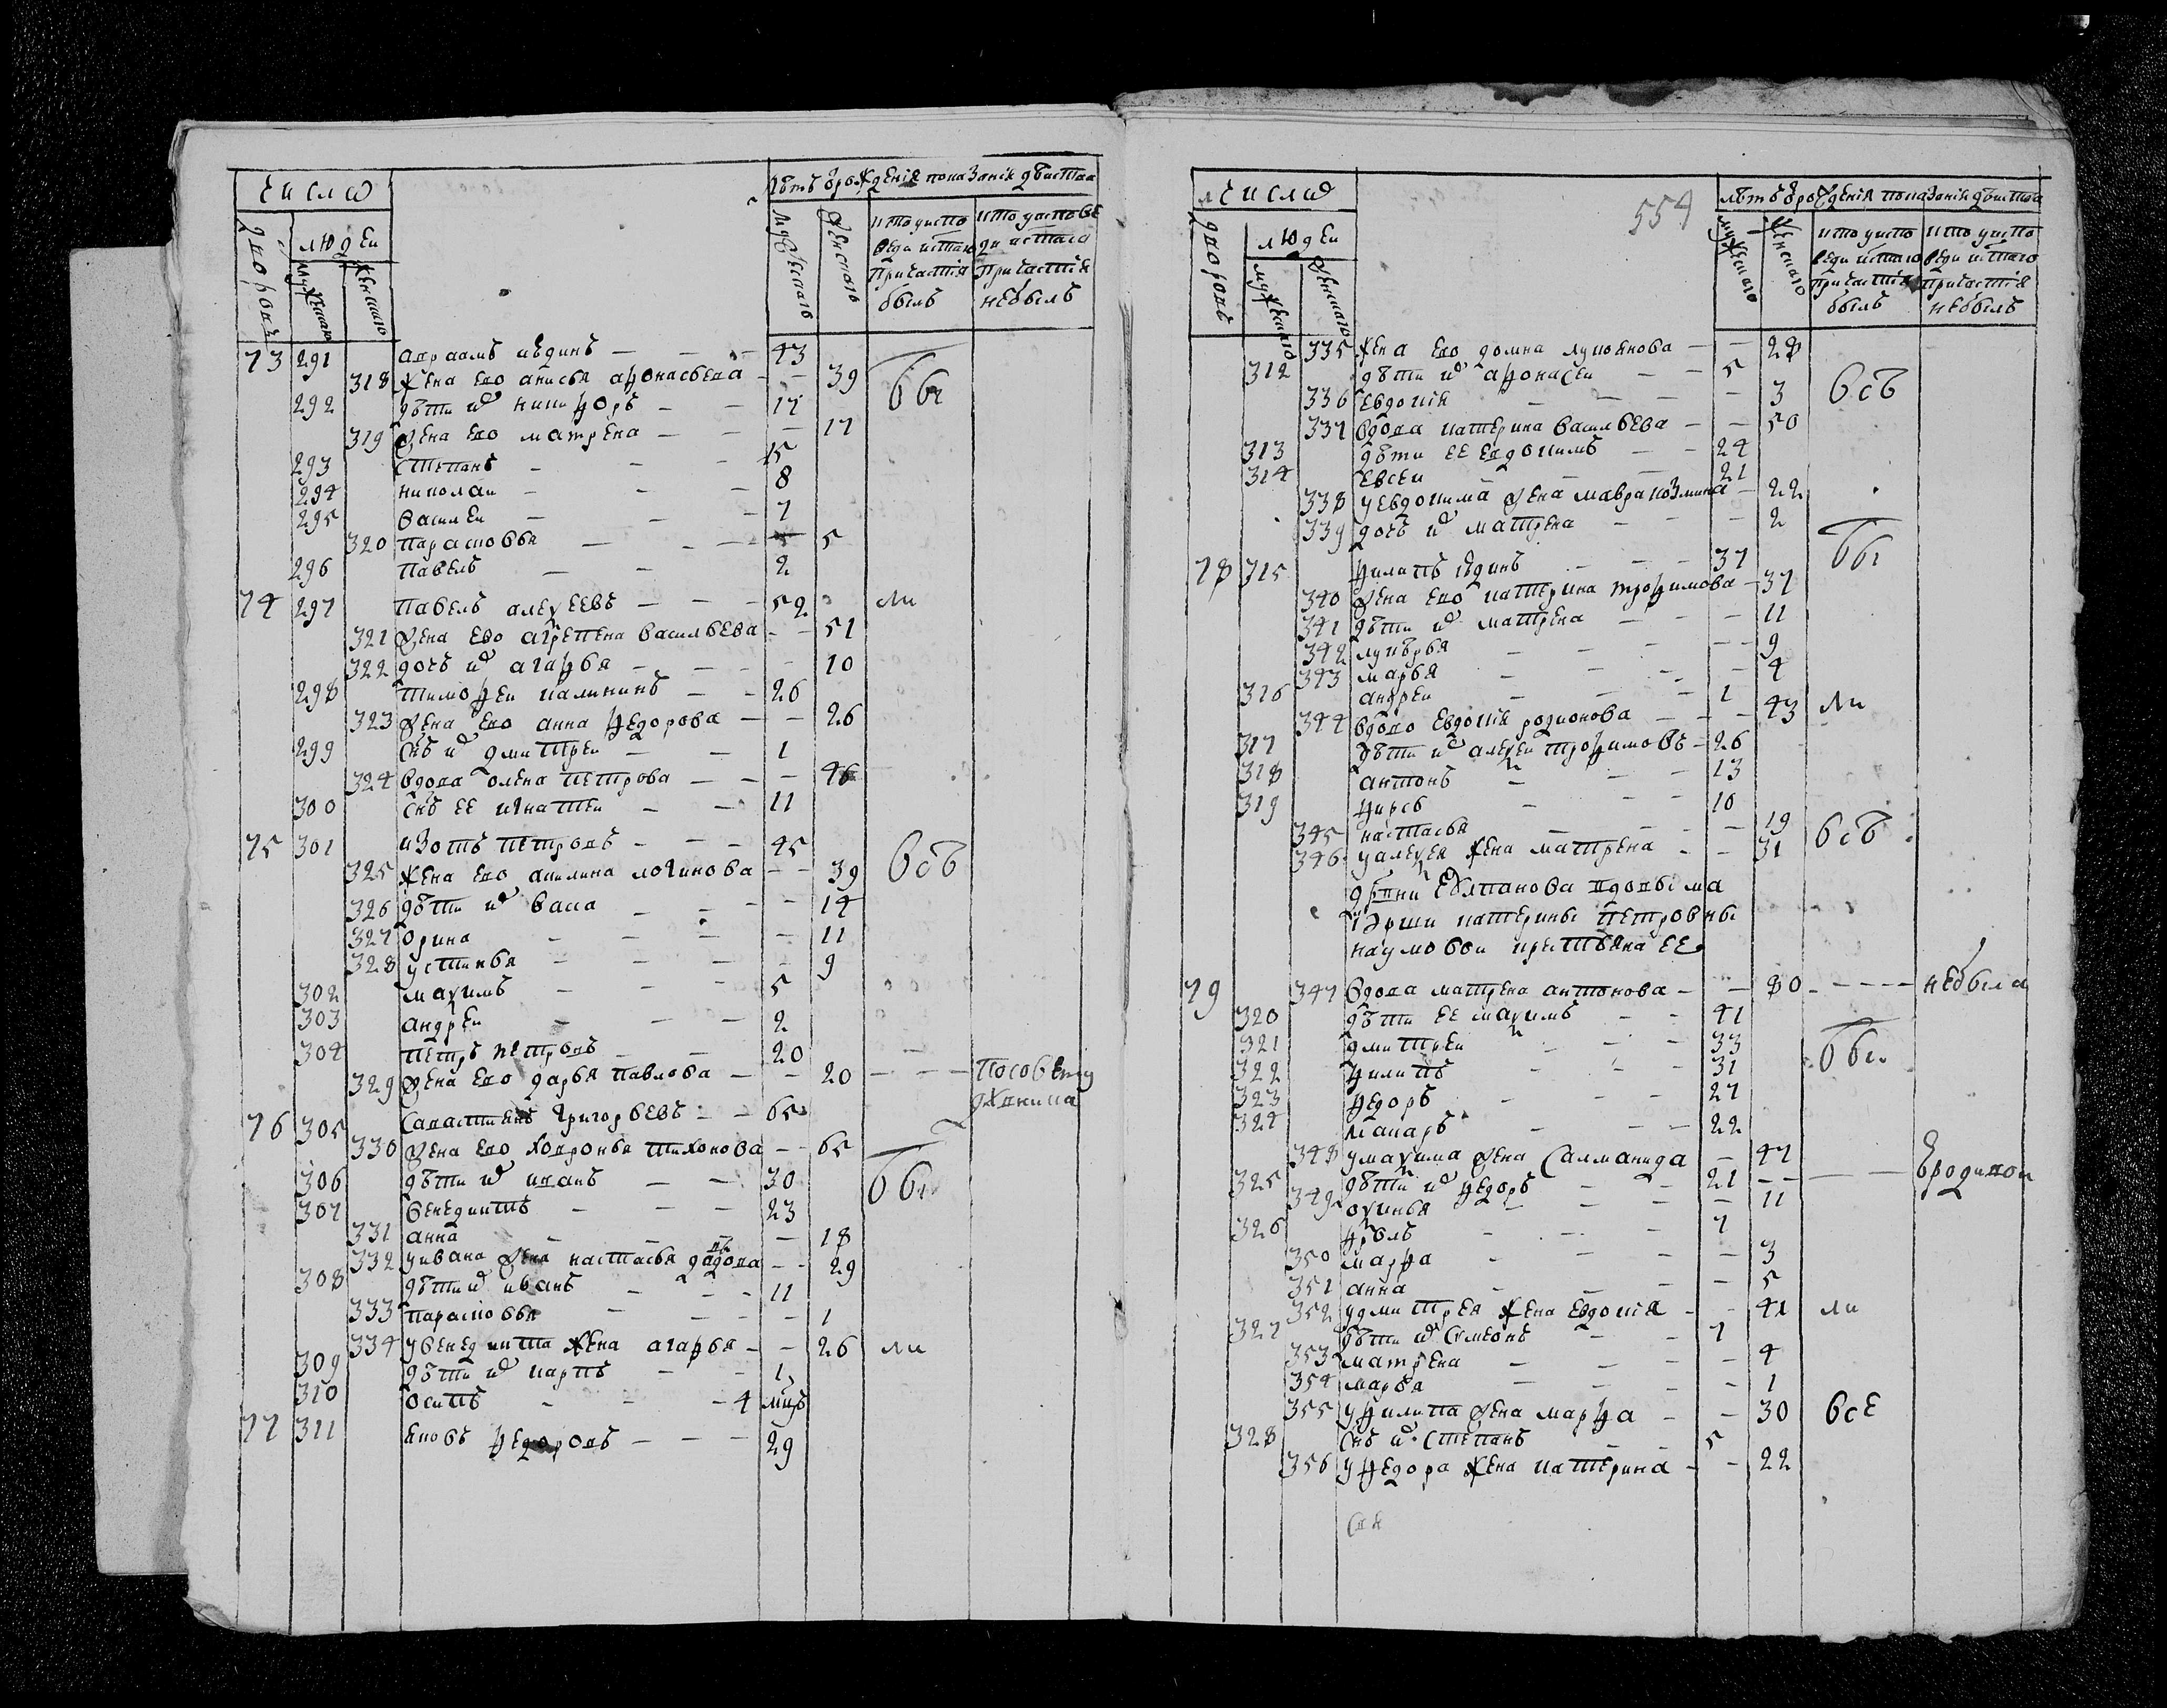 числo
лѣтъ ѿрождения показание двѣства
дворовъ
людеи
мужеска
женска
мужескаго
женскаго
кто уиспо
веди истаго
причастия
былъ
кто успове
ди истаго
причастия
небылъ
73 291 авраамъ 43
318 жена ево анисья афонасьева 39
292 дѣти их никифоръ 17
319 жена ево матрена 17
293 степанъ 15
294 николаи 8
295 василеи 7
320 парасковья 5
296 павелъ 2
74 297 павелъ алеѯеевъ 52
321 жена ево агрепена васильева 51
322 дочь их агафья 10
298 тимофеи калининъ 26
323 жена ево анна федорова 26
299 снъ их дмитреи 1
324 вдова олена петрова 46
300 снъ ее игнатеи 11
75 301 изотъ петровъ 45
325 жена ево акилина логинова 39 всѣ
326 дѣти их васа 14
327 орина 11
328 устинья 9
302 маѯимъ 5
303 андреи 2
304 петръ петровъ 20
329 жена ево дарья павлова 20
76 305 савастиянъ григорьевъ 65
330 жена ево ховронья тихонова 65
306 дѣти их иванъ 30
307 бенедиктъ 23
331 анна 18
332 уивана жена настасья 29
308 дѣти их иванъ 11
333 парасковья 1
334 убенедикта жена агафья 26
309 дѣти их карпъ 1
310 осипъ 4 мцъ
77 311 яковъ федоровъ 29
554
числo
лѣтъ ѿрождения показание двѣства
дворовъ
людеи
мужескаго
женскаго
мужескаго
женскаго
кто уиспо
веди истаго
причастия
былъ
кто уиспо
веди истаго
причастия
небылъ
335 жена ево домна лукоянова 28
312 дѣти их афонасеи 5
336 евдокия 3 всѣ
337 вдова катерина васильева 50
313 дѣти ее евдокимъ 24
314 евсеи 21
338 уевдокима жена мавра козмина 22
339 дочь их матрена 2
78 315 филипъ 37
340 жена ево катерина трофимова 37
341 дѣти их матрена 11
342 лукѣрья 9
343 марья 4
316 андреи 1
344 вдова евдокия родионова 43
317 дѣти их алеѯеи трофимовъ 26
318 антонъ 13
319 фирсъ 10
345 настасья 19
346 уалеѯея жена матрена 31 всѣ
дрвни вдовы ма
иорши катерины петровны
наумовои крестьяна ее
79 347 вдова матрена антонова 80 небыла
320 дѣти ее маѯимъ 41
321 дмитреи 33
322 филипъ 31
323 федоръ 27
324 макаръ 22
348 умаѯима жена саламанида 47
325 дѣти их федоръ 21
349 оѯинья 11
326 фролъ 7
350 марфа 3
351 анна 5
352 удмитрея жена евдокия 41
327 дѣти их сѵмеонъ 7
353 матрена 4
354 марья 1
355 уфилипа жена марфа 30 все
328 снъ их степанъ 5
356 уфедора жена катерина 22